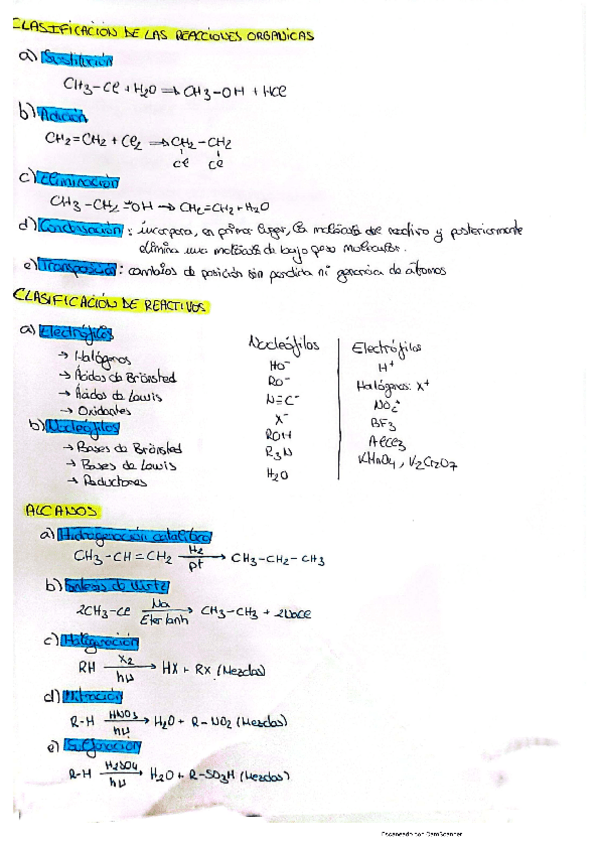 CLASIFICACIÓN DE LAS REACCIONES ORGANICAS
a) Sustitución
CH3-Cl + H2O ⟶ CH3-OH + HCl
b) Adición
CH2=CH2 + Cl2 ⟶ CH2-CH2
Cl Cl
c) Eliminación
CH3-CH2-OH ⟶ CH2=CH2 + H2O
d) Condensación: incorpora, en primer lugar, la molécula del reactivo y posteriormente
elimina una molécula de bajo peso molecular.
e) Transposición: cambios de posición sin perdida ni ganancia de átomos
CLASIFICACIÓN DE REACTIVOS
a) Electrófilos
→ Halógenos
→ Ácidos de Brönsted
→ Ácidos de Lewis
→ Oxidantes
b) Nucleófilos
→ Bases de Brönsted
→ Bases de Lewis
→ Reductores
Nucleófilos
HO⁻
RO⁻
N≡C⁻
X⁻
ROH
R3N
H2O
Electrófilos
H⁺
Halógenos: X⁺
NO2⁺
BF3
AlCl3
KMnO4, V2Cr2O7
ALCANOS
a) Hidrogenación catalítica
CH3-CH=CH2 H2/pt → CH3-CH2-CH3
b) Síntesis de Wurtz
2CH3-Cl Na/Eter anh → CH3-CH3 + 2NaCl
c) Halogenación
RH X2/hμ → HX + RX (Mezclas)
d) Nitración
R-H HNO3/hμ → H2O + R-NO2 (Mezclas)
e) Sulfonación
R-H H2SO4/hμ → H2O + R-SO3H (Mezclas)
Escaneado con CamScanner